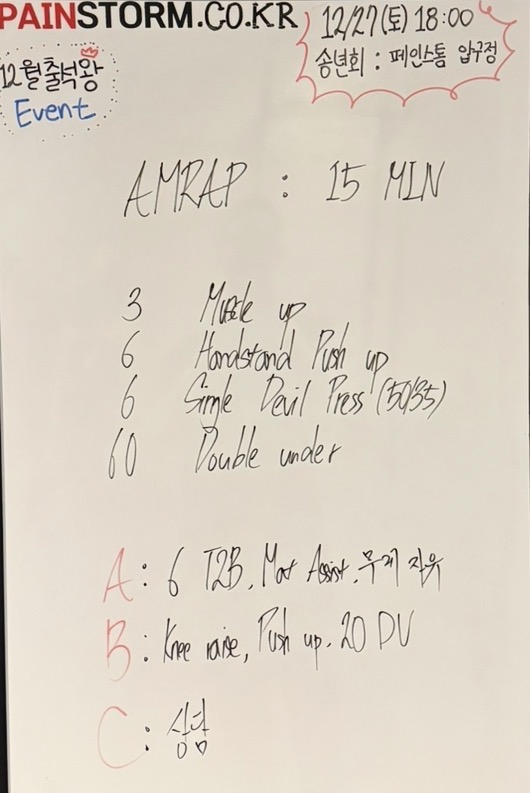 PAINSTORM.CO.KR
12/27(토) 18:00
송년회 : 페인스톰 압구정
12월 출석왕
Event
AMRAP : 15 MIN
3 Muscle up
6 Handstand Push up
6 Single Devil Press (50/35)
60 Double under
A : 6 T2B, Mat Assist, 무게 자유
B : Knee raise, Push up, 20 DU
C : 상담